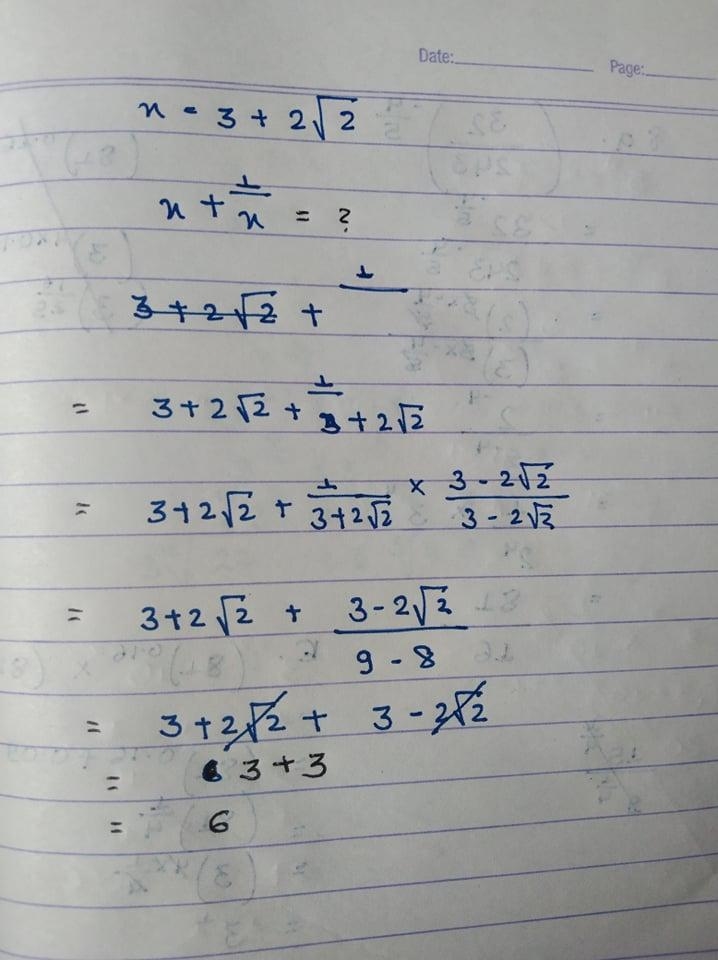 Date: Page:
x = 3 + 2√2
x + 1/x = ?
3 + 2√2 + 1/
= 3 + 2√2 + 1/3 + 2√2
= 3 + 2√2 + 1/3 + 2√2 × 3 - 2√2/3 - 2√2
= 3 + 2√2 + 3 - 2√2/9 - 8
= 3 + 2√2 + 3 - 2√2
= 3 + 3
= 6